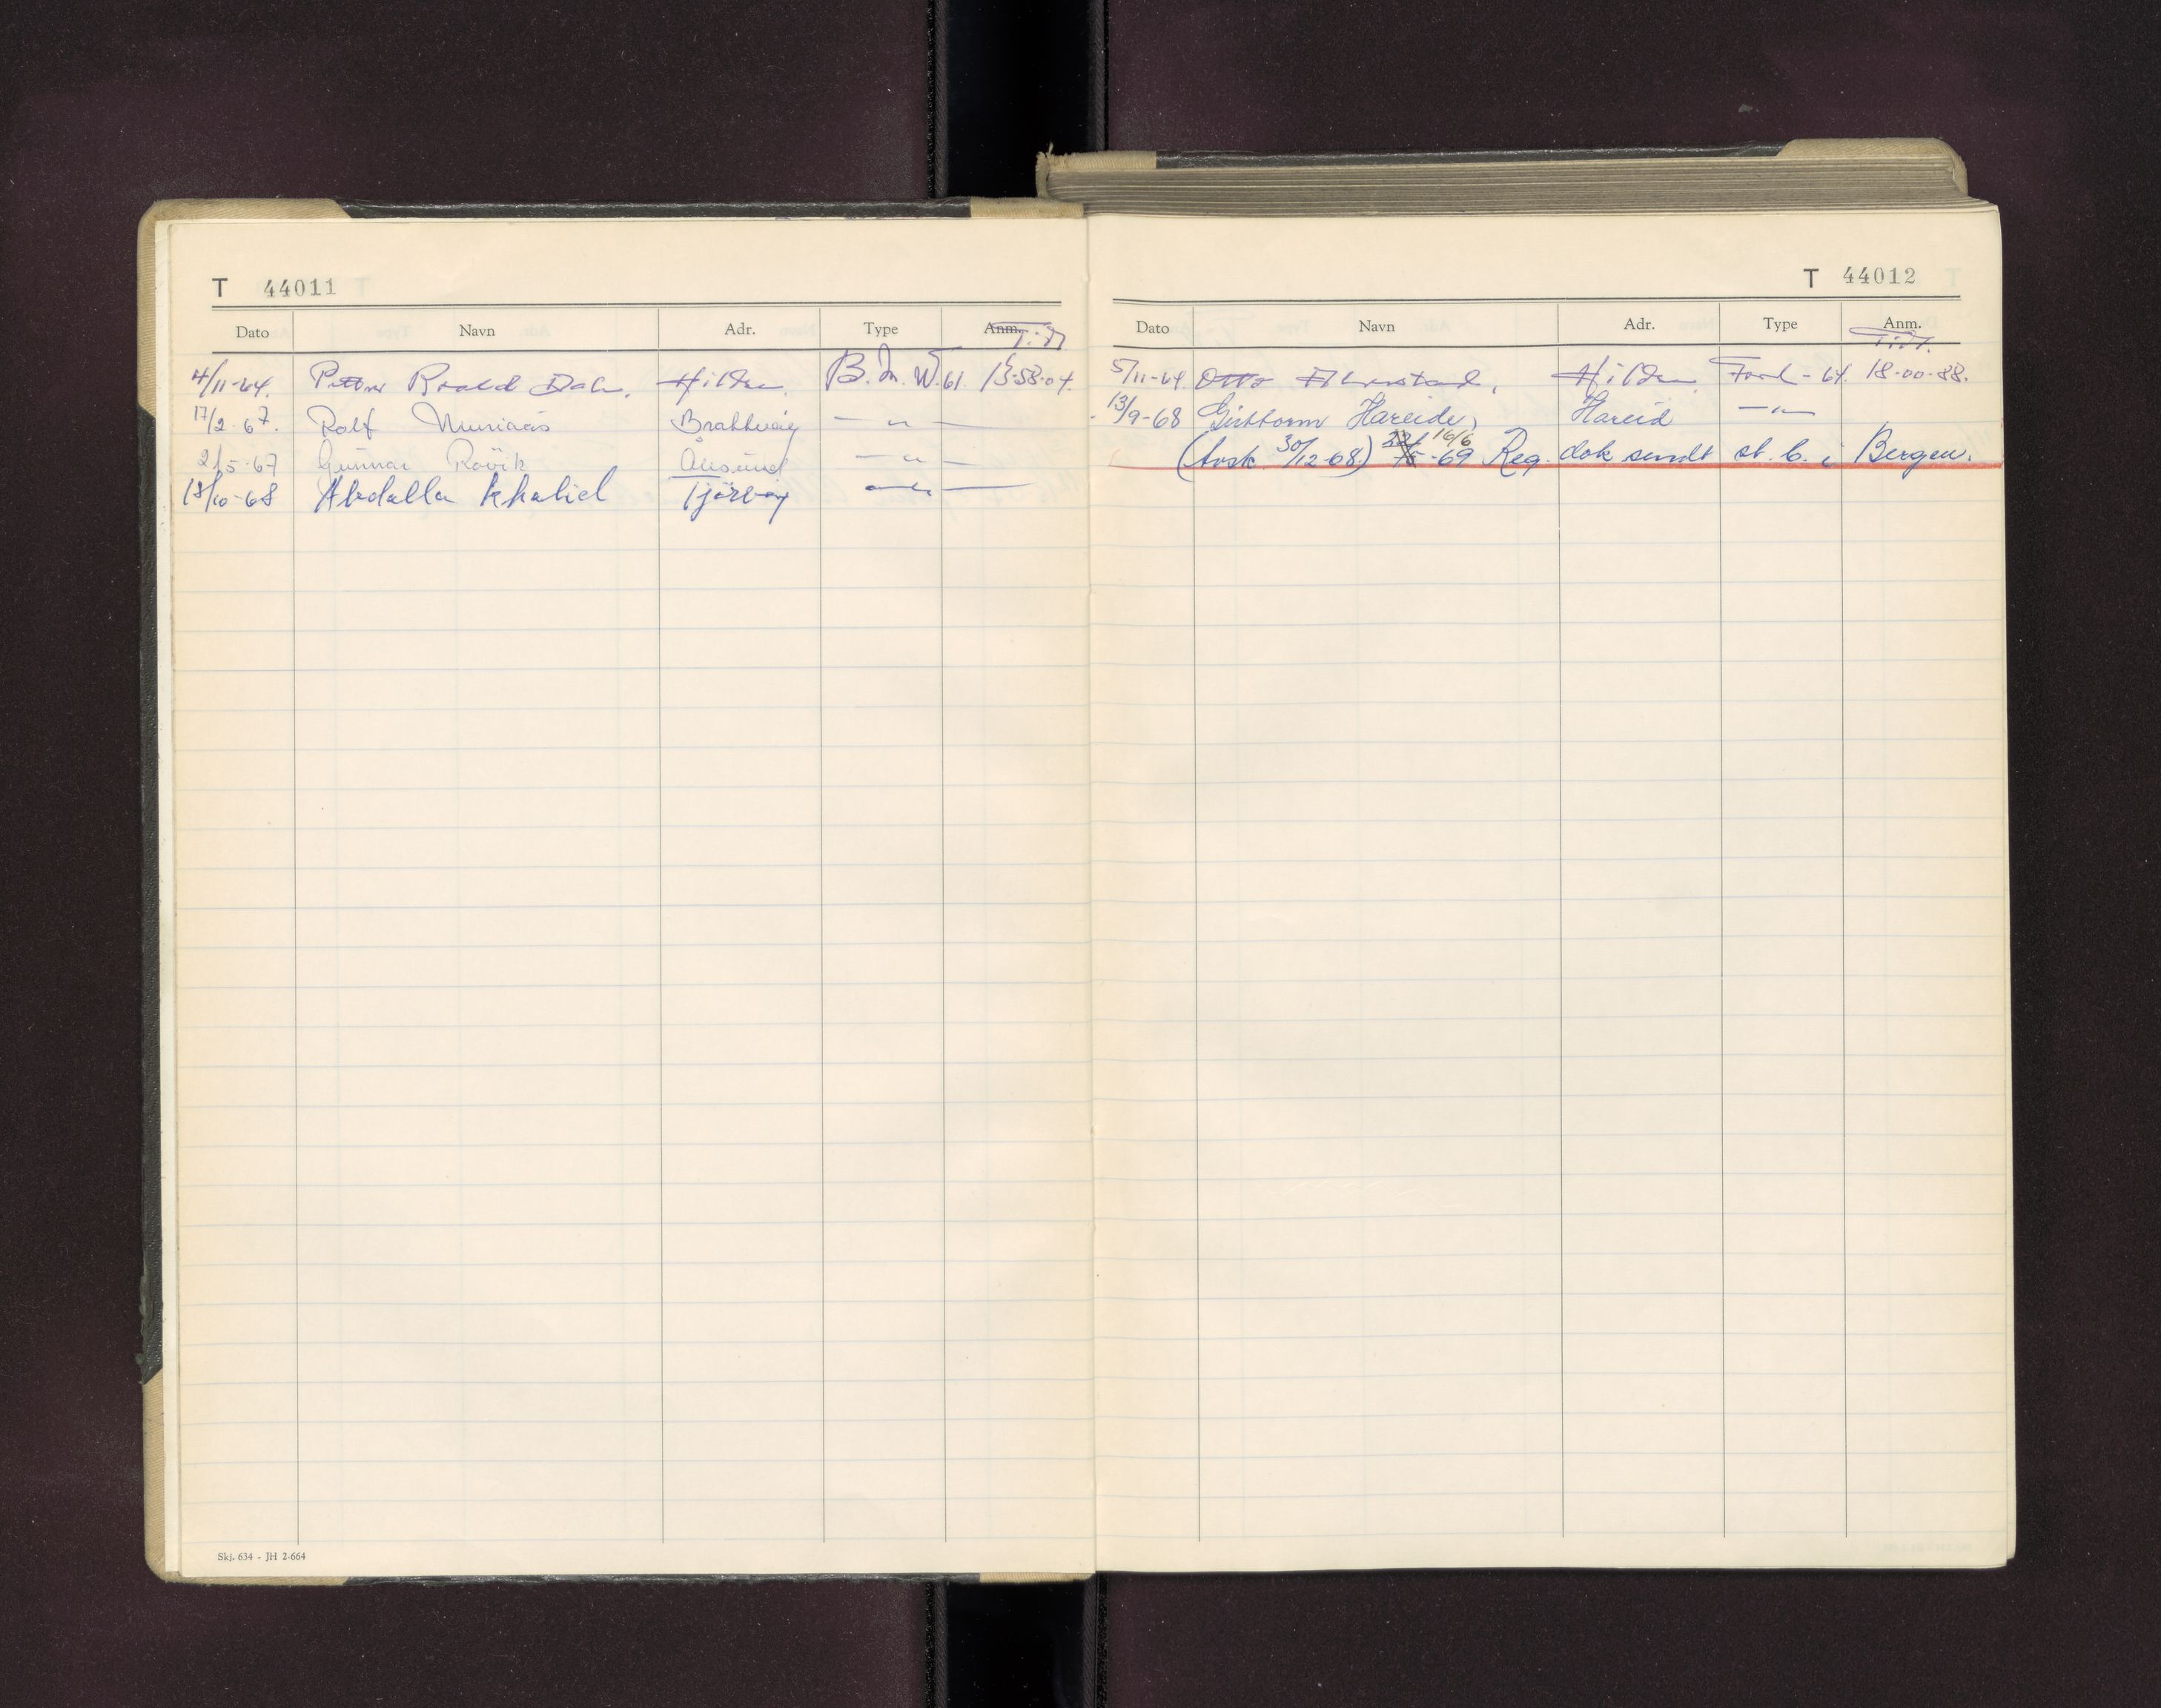 T 44011
Dato Navn Adr. Type Anm.
T.nr.
4/11-64. Petter Roald Dale. Hildre. B.M.W. 61 13-58-04.
17/2-67. Rolf Muriaas Brattvåg — " —
2/5-67 Gunnar Rovik Ålesund — " —
18/10-68 Abdalla Khaliel Tjörvåg — " —
Skj. 634 - JH 2-664
T 44012
Dato Navn Adr. Type Anm.
T.nr.
5/11-64. Otto Hildre. Ford - 64. 18-00-88.
13/9-68 Guttorm Hareide, Hareid — " —
(Avsk. 30/12-68) 16/6 -69 Reg. dok sendt st. b. i Bergen.